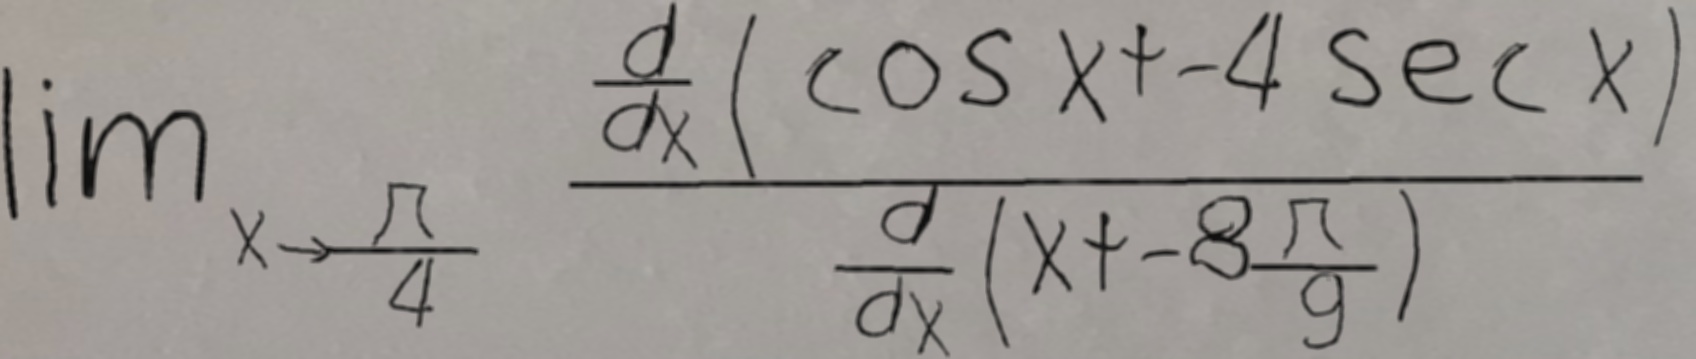 \lim_{x \to \frac{\pi}{4}} \frac{\frac{d}{dx}(\cos x + -4 \sec x)}{\frac{d}{dx}(x + -8\frac{\pi}{9})}